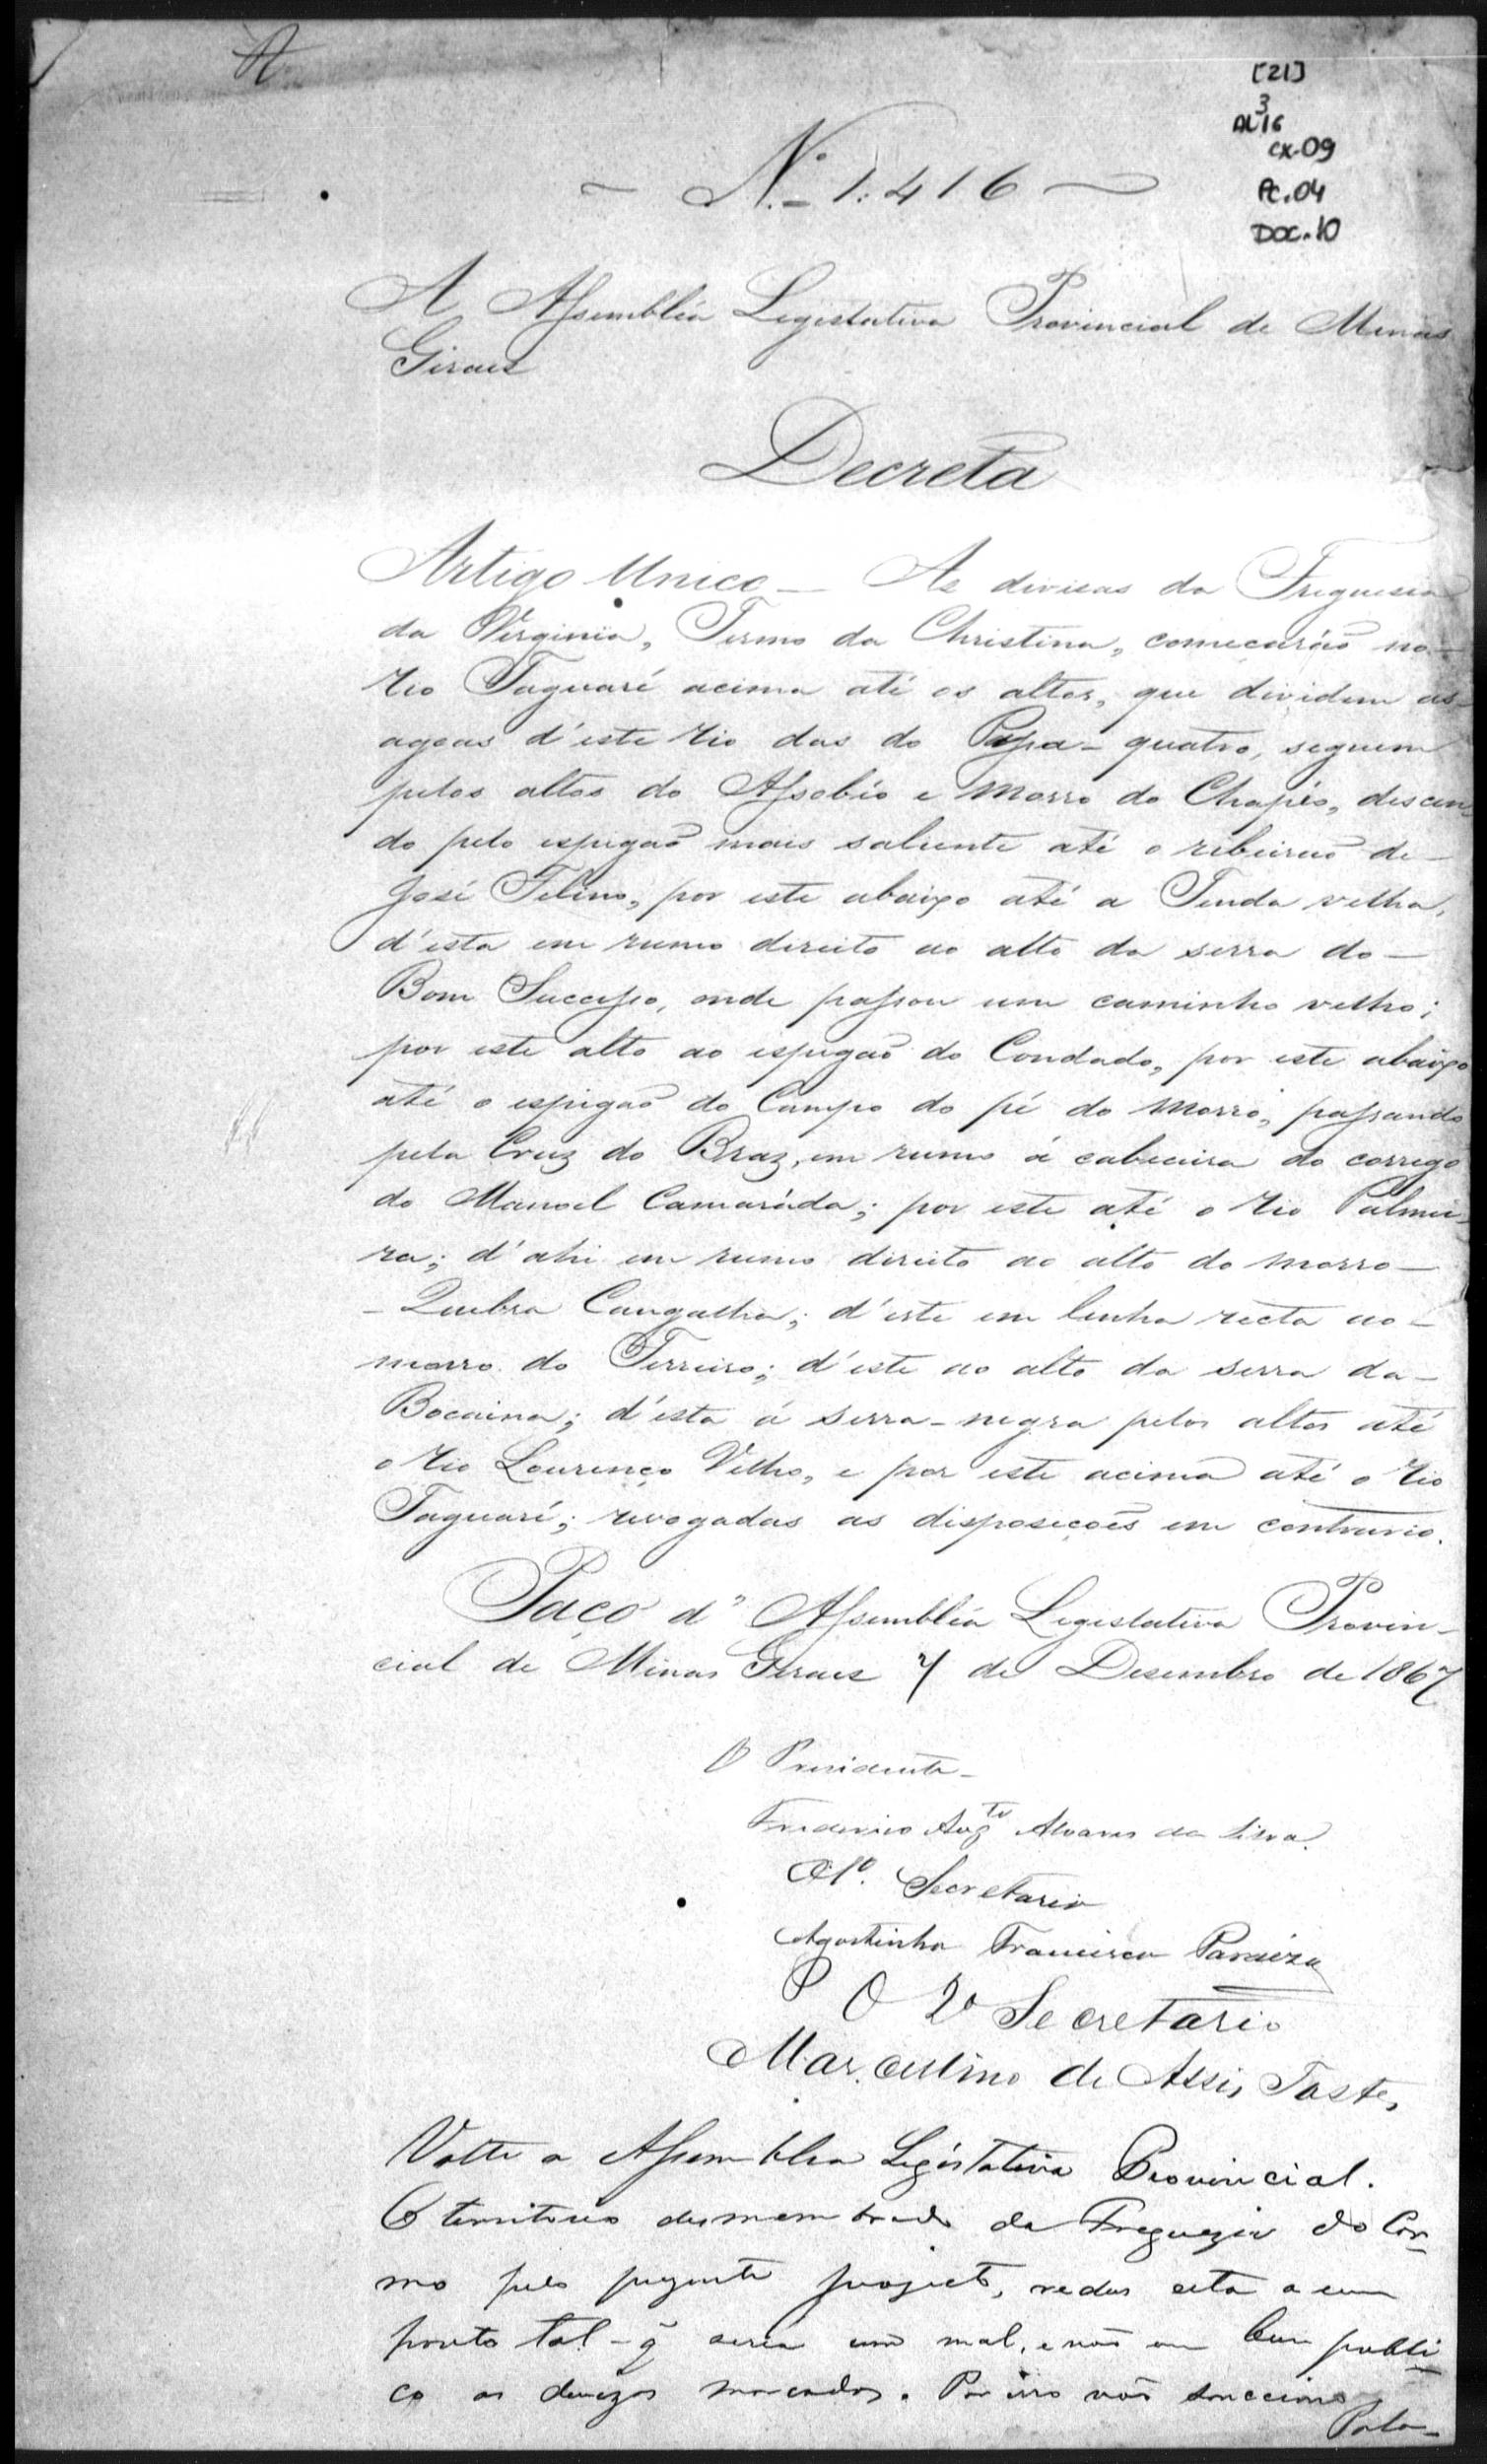 [21]
3
AL16
CX.09
PC.04
DOC.10
N.º 1:416
A Assembléa Legislativa Provincial de Minas
Geraes
Decreta
Artigo Unico — As divisas da Freguesia
da Virginia, Termo da Christina, comecarão no
rio Taquaré acima até os altos, que dividem as
agoas d'este rio das do Passa-quatro, seguem
pelos altos do Assobio e morro do Chapéo, descen
do pelo espigaõ mais saliente até o ribeiraõ de
José Felino, por este abaixo até a Tenda velha,
d'esta em rumo direito ao alto da serra do
Bom Successo, onde passou um caminho velho;
por este alto ao espigaõ do Condado, por este abaixo
até o espigaõ do Campo do pé do morro, passando
pela Cruz do Braz, em rumo á cabeceira do corrego
do Manoel Camaráda; por este até o rio Palmei-
ra; d'ahi em rumo direito ao alto do morro
- Quebra Cangalha; d'este em linha recta ao
morro do Terreiro; d'este ao alto da serra da
Bocaina; d'esta á serra-negra pelos altos até
o rio Lourenço Velho, e por este acima até o rio
Taquari; revogadas as disposições em contrario.
Paço d' Assembléa Legislativa Provin-
cial de Minas Geraes 7 de Desembro de 1867
O Presidente
Frederico Augto Alvares da Silva.
O 1º. Secretario
Agostinho Francisco Paraizo
O 2º Secretario
Marcellino de Assis Tostes
Volte a Assemblea Legislativa Provincial.
O territorio desmembrado da Freguezia do Car-
mo pelo prezente projecto, redus esta a um
ponto tal - q̃ seria um mal, e não um bem publi
co as divizas marcadas. Por isso não sancciono
Pala-